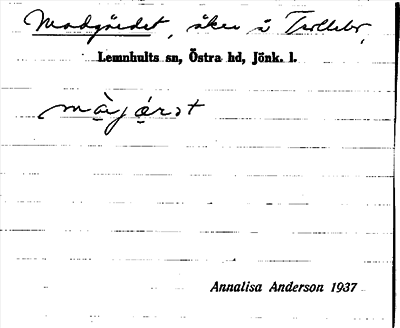 Madgärdet, åker å Trollebo,
Lemnhults sn, Östra hd, Jönk. l.
Annalisa Anderson 1937